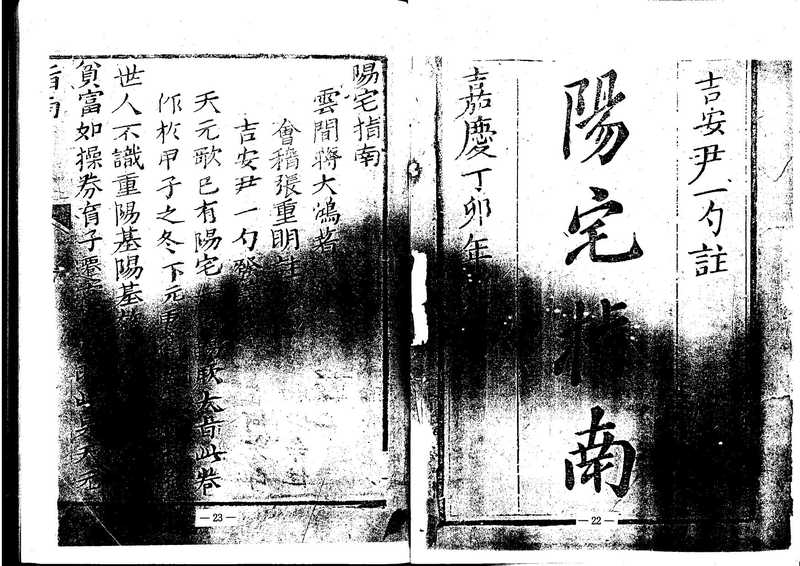 吉安尹一勺註
陽宅指南
嘉慶丁卯年
— 22 —
陽宅指南
雲間蔣大鴻著
會稽張重明註
吉安尹一勺發
天元歌已有陽宅
作於甲子之冬下元
世人不識重陽基陽基
貧富如操券育子遷
指南
— 23 —